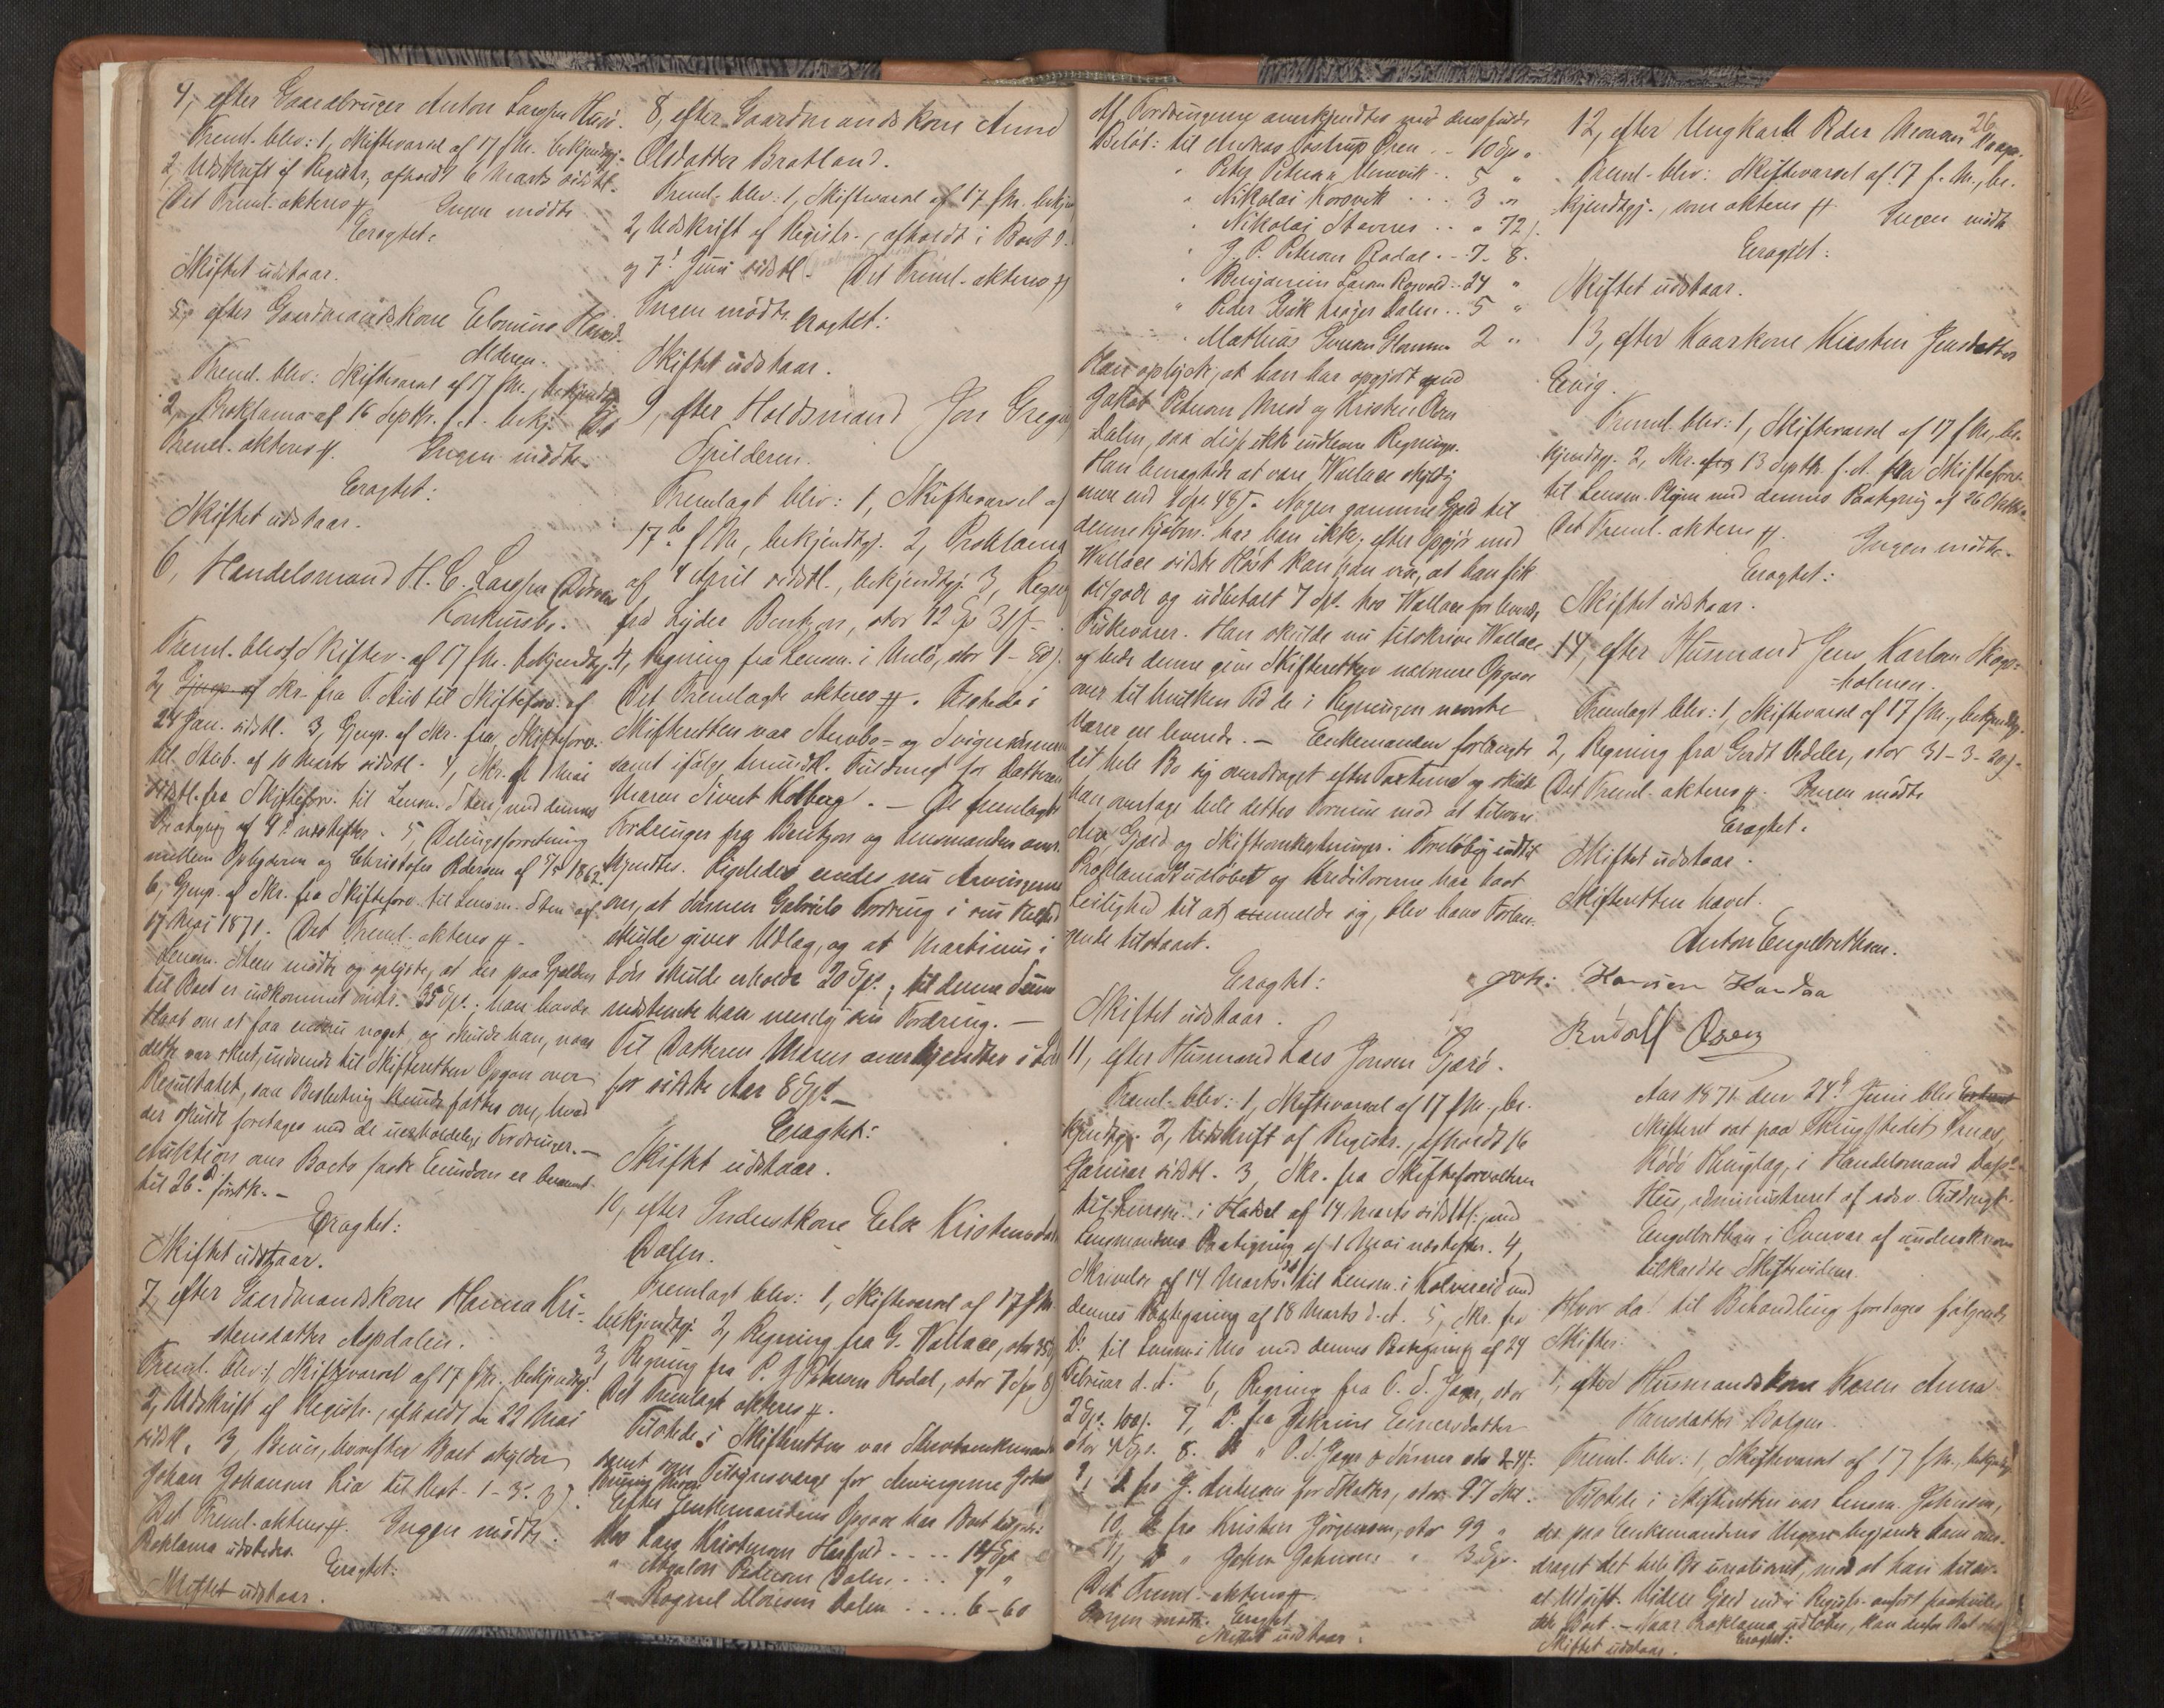 4, efter Gaardbruger Anton Larssen
Freml. blev: 1, Skiftevarsel af 17 f. M. bekjendtgj.
2, Udskrift af Registr., afholdt 6 Marts sidstl.
Det Freml. akteres #. Ingen mødte
Eragtet:
Skiftet udstaar.
5, efter Gaardmandskone
Alderen.
Freml. blev: Skiftevarsel af 17 f M., bekjendtgj.
2, Proklama af 16 Septbr. f. A. bekj. Det
Freml. akteres #. Ingen mødte.
Eragtet:
Skiftet udstaar.
6, Handelsmand H. C. Larssen
Konkursbo.
Freml. blev 1, Skiftev. af 17 f M. bekjendtgj.
2, Skr. fra til Skifteforv. af
24 Jan. sidstl. 3, Gjenp. af Skr. fra Skifteforv.
til af 10 Marts sidstl. 4, Skr. af 1 Mai
sidstl. fra Skifteforv. til Lensm. Steen, med dennes
Paategng af 9d næstefter. 5, Delingsforretning
mellem Opbyderen og Christofer Pedersen af 1862.
6, Gjenp. af Skr. fra Skifteforv. til Lensm. Steen af
17 Mai 1871. Det Freml. akteres #.
Lensm. Steen mødte og oplyste, at der paa Gjælden
til Boet er indkommet 35 Spd.; han havde
Haab om at faa endnu noget, og skulde han, naar
dette var skeet, indsende til Skifteretten Opgave over
Resultatet, saa Beslutning kunde fattes om, hvad
der skulde foretages med de uerholdelige Fordringer. –
Auktion over Boets faste Eiendom er berammet
til 26d førstk. –
Eragtet:
Skiftet udstaar.
7, efter Gaardmandskone Hanna Kri-
stensdatter Aspdalen.
Freml. blev: 1, Skiftevarsel af 17 f M., bekjendtgj.
2, Udskrift af Registr., afholdt den 22 Mai
sidstl. 3, Bevis, hvorefter Boet skylder
Johan Johansen Lia til Rest 1-3-
Det Freml. akteres #. Ingen mødte.
Proklama udstedes.
Eragtet:
Skiftet udstaar.
8, efter Gaardmandskone Anne
Olsdatter Bratland.
Freml. blev: 1, Skiftevarsel af 17 f M. bekj.
2, Udskrift af Registr., afholdt i Boet
og 7d Juni sidstl. Det Freml. akteres #
Ingen mødte. Eragtet:
Skiftet udstaar.
9, efter Holdsmand Jon Greger
Spilderen.
Fremlagt blev: 1, Skiftevarsel af
17de f M., bekjendtgj. 2, Proklama
af 4 April sidstl., bekjendtgj. 3, Regng
fra Lyder Bentzon, stor 12 Sp 31 s.
4, Regning fra Lensm. i Melø, stor 1-
Det Fremlagte akteres #. Tilstede i
Skifteretten var Stervbo- og
samt ifølge mundtl. Fuldmagt for Datteren
Maren Sivert Kolberg. – De fremlagte
Fordringer fra Bentzon og Lensmanden aner-
kjendtes. Ligeledes enedes nu Arvingerne
om, at Sønnen Gabriels Fordring i sin Helhed
skulde gives Udlag, og at Martinus i
Løn skulde erholde 20 Spd.; til denne Sum
nedsatte han nemlig sin Fordring. –
Til Datteren Maren anerkjendtes i Løn
for sidste Aar 8 Spd. –
Eragtet:
Skiftet udstaar.
10, efter Inderstkone Elen Kristensdatter
Dalen.
Fremlagt blev: 1, Skiftevarsel af 17 f M.
bekjendtgj. 2, Regning fra G. Wallace, stor
3, Regning fra P. J. Petersen Rødal, stor 7 Sp 8
Det Fremlagte akteres #.
Tilstede i Skifteretten var Stervboenkemanden
samt som Tilsynsværge for Arvingerne
Efter Enkemandens Opgave har Boet tilgode:
Hos Lars Kristensen . . . . 14 Spd.
" Absalon Pedersen Dalen . . . 9 "
" Ragnel Monsen Dalen . . . . 6-60
Af Fordringerne anerkjendtes med deres fulde
Beløb: til Andreas Tostrup Øren . . 10 Sp "
" Peter Petersen . . 5 "
" Nikolai Korsvik . . . 3 "
" Nikolai Stavnes . . " 72 s.
" J. P. Petersen Rødal . . 7- 8.
" Benjamin Larsen . . 24 "
" Peder Isak Dalen . . 5 "
" Mathias Jensen 2 "
Han oplyste, at han har opgjort med
Jakob Petersen og Kristen
Dalen, saa disse ikke indlevere Regninger.
Han benægtede at være Wallace skyldig
mere end 9 Sp. 48 s. Nogen gammel Gjæld til
denne har han ikke; efter Opgjør med
Wallace sidste Høst kan han vise, at han fik
tilgode og udbetalt 7 Spd. hos Wallace for leverede
Fiskevarer. Han skulde nu tilskrive Wallace
og bede denne give Skifteretten nærmere Opgave
over til hvilken Tid de i Regningen nævnte
Varer ere leverede. – Enkemanden forlangte
det hele Bo sig overdraget efter Taxterne og skulde
han overtage hele dettes Formue mod at tilsvare
dets Gjæld og Skifteomkostninger. Foreløbig indtil
Proklama er udløbet og Kreditorerne har havt
Leilighed til at anmelde sig, blev hans Forlan-
gende tilstaaet.
Eragtet:
Skiftet udstaar.
11, efter Husmand Lars Jonsen Gjærø.
Freml. blev: 1, Skiftevarsel af 17 f M., be-
kjendtgj. 2, Udskrift af Registr., afholdt 16
Januar sidstl. 3, Skr. fra Skifteforvalteren
til Lensm. i Hadsel af 14 Marts sidstl., med
Lensmandens Paategning af 1 Mai næstefter. 4,
Skrivelse af 14 Marts til Lensm. i Kolvereid med
dennes Paategning af 18 Marts d. A. 5, Skr. fra
Do til Lensm. i med dennes Paategning af 24
Februar d. A. 6, Regning fra O. S. Jager, stor
2 Spd. 100 s. 7, Do. fra Einersdatter
stor 4 Spd. 8. Do " O. S. Jager
9, Do fra J. Andersen for Skatter, stor 27 Sk.
10, Do fra Kristen Jørgensen, stor 99 "
11, Do " Johan Johansen " 3 Spd.
Det Freml. akteres #.
Ingen mødte. Eragtet
Skiftet udstaar.
26
12, efter Ungkarl Peder
Freml. blev: Skiftevarsel af 17 f. M., be-
kjendtgj., som akteres #. Ingen mødte
Eragtet:
Skiftet udstaar.
13, efter Kaarkone Kirsten Jensdatter
Freml. blev: 1, Skiftevarsel af 17 f M., be-
kjendtgj. 2, Skr. 13 Septbr. f. A. fra Skifteforv.
til Lensm. med dennes Paategng af 26 Oktbr.
Det Freml. akteres #. Ingen mødte.
Eragtet:
Skiftet udstaar.
14, efter Husmand Jens Karlsen Skogs-
holmen.
Fremlagt blev: 1, Skiftevarsel af 17 f M., bekjendtgj.
2, Regning fra Gerdt Meteler, stor 31-3-20 s.
Det Freml. akteres #. Ingen mødte
Eragtet.
Skiftet udstaar.
Skifteretten hævet.
Anton Engelbrethsen.
Joh: Hansen Handaa
Rudolf Olsen
Aar 1871 den 24de Juni blev
Skifteret sat paa Thingstedet
Rødø Thinglag, i Handelsmand
Hus, administreret af edsv. Fuldmægt.
Engelbrethsen i Overvær af underskrevne
tilkaldte Skiftevidner.
Hvor da til Behandling foretages følgende
Skifter:
1, efter Husmandskone Karen Anna
Hansdatter Bolgen.
Freml. blev: 1, Skiftevarsel af 17 f M., bekjendtgj.
Tilstede i Skifteretten var Lensm. Johnsen,
der paa Enkemandens Vegne begjærede ham over-
draget det hele Bo uregistreret, mod at han tilsv.
al Udgift. Videre Gjæld end i Registr. anført paahviler
ikke Boet. – Naar Proklama udløber, kan dette Bo
Skiftet udstaar. Eragtet: